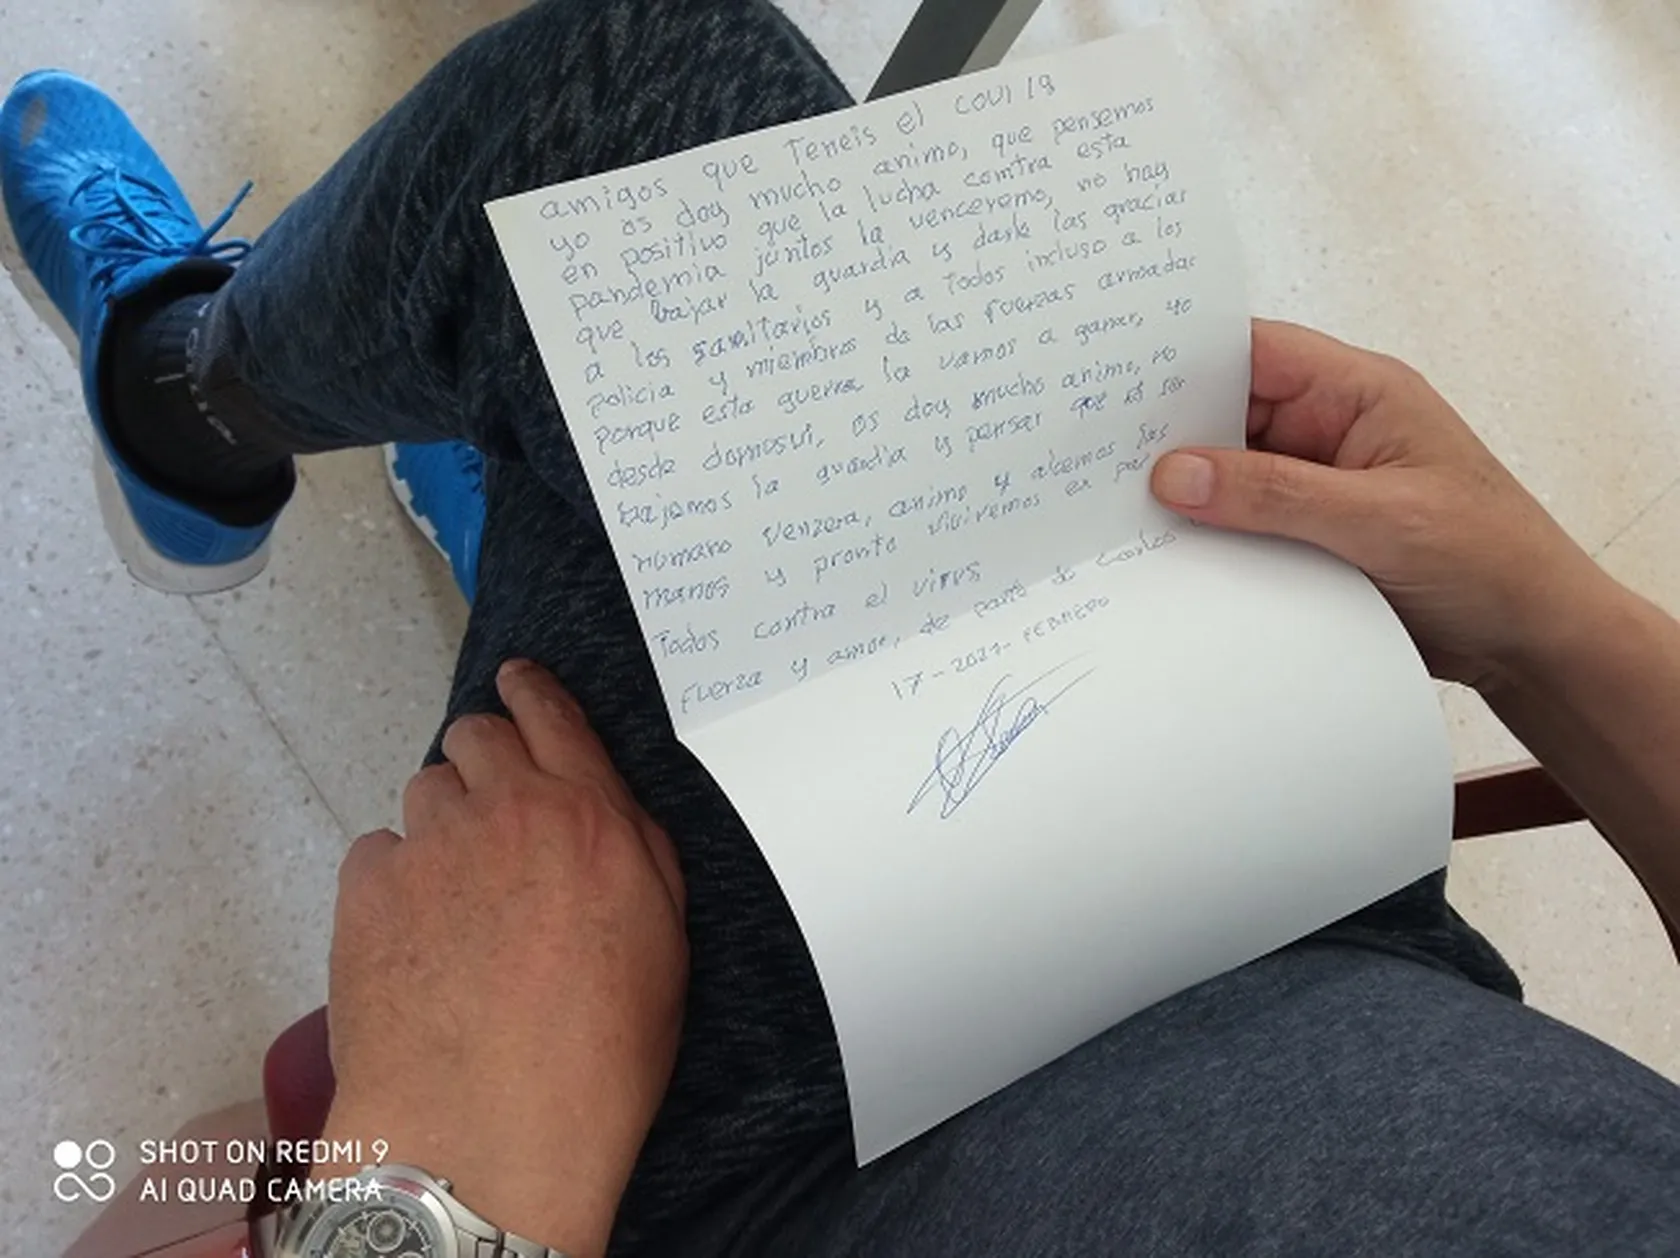 amigos que Teneis el COVI 19
yo os doy mucho animo, que pensemos
en positivo que la lucha contra esta
pandemia juntos la venceremo, no hay
que bajar la guardia y darle las gracias
a los sanitarios y a Todos incluso a los
policia y miembros de las fuerzas armadas
porque esta guerra la vamos a ganar, yo
desde dornosui, os doy mucho animo, no
bajemos la guardia y pensar que el ser
humano venzera, animo y alcemos las
manos y pronto viviremos en paz
Todos contra el virus
fuerza y amor, de parte de Carlos
17-2021-FEBRERO
SHOT ON REDMI 9
AI QUAD CAMERA